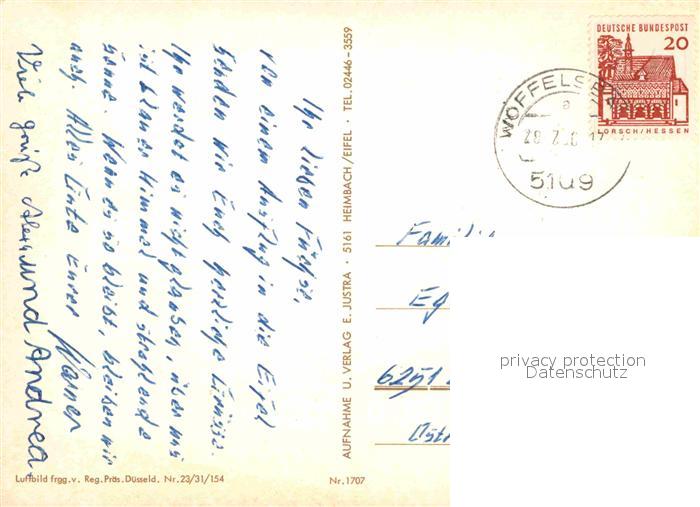 Ihr lieben Füchse,
von einem Ausflug in die Eifel
senden wir Euch herzliche Grüsse.
Ihr werdet es nicht glauben, über uns
ist blauer Himmel und strahlende
Sonne. Wenn es so bleibt, bleiben wir
auch. Alles Liebe Eurer Werner
Viele Grüße Alex und Andrea.
AUFNAHME U. VERLAG E. JUSTRA · 5161 HEIMBACH/EIFEL · TEL. 02446-3559
Luftbild frgg. v. Reg. Präs. Düsseld. Nr. 23/31/154
Nr. 1707
DEUTSCHE BUNDESPOST
20
LORSCH/HESSEN
WOFFELS
a
5109
Famili
Eg
6251
privacy protection
Datenschutz